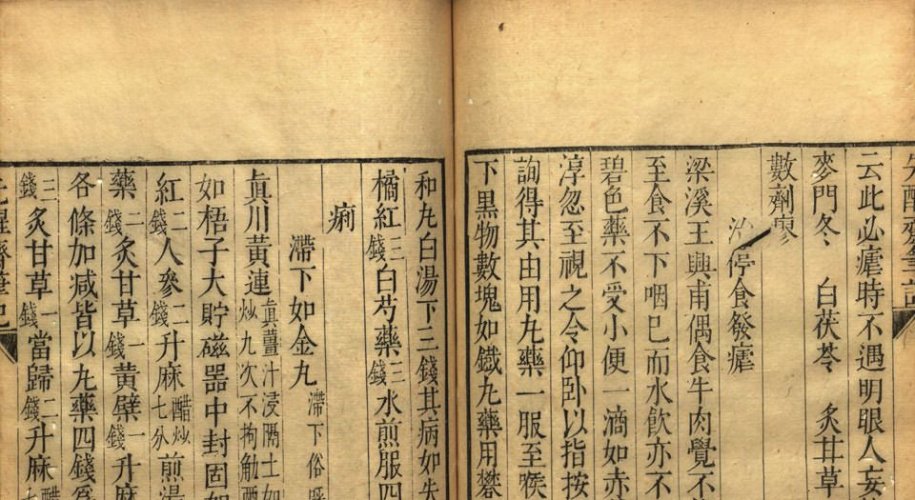 先醒齋筆記
云此必瘧時不遇明眼人妄
麥門冬　白茯苓　炙甘草
數劑瘳
治停食發瘧
梁溪王興甫偶食牛肉覺不
至食不下咽已而水飲亦不
碧色藥不受小便一滴如赤
淳忽至視之令仰臥以指按
詢得其由用丸藥一服至喉
下黑物數塊如鐵丸藥用礬
和丸白湯下三錢其病如失
橘紅三錢白芍藥三錢水煎服四
痢
滯下如金丸滯下俗呼
眞川黃連眞薑汁浸隔土炒九次不拘觔
如梧子大貯磁器中封固如
紅二錢人參二錢升麻醋炒七分煎湯
藥二錢炙甘草一錢黃蘗一錢升麻
各條加減皆以丸藥四錢爲
三錢炙甘草一錢當歸二錢升麻醋
先醒齋筆記